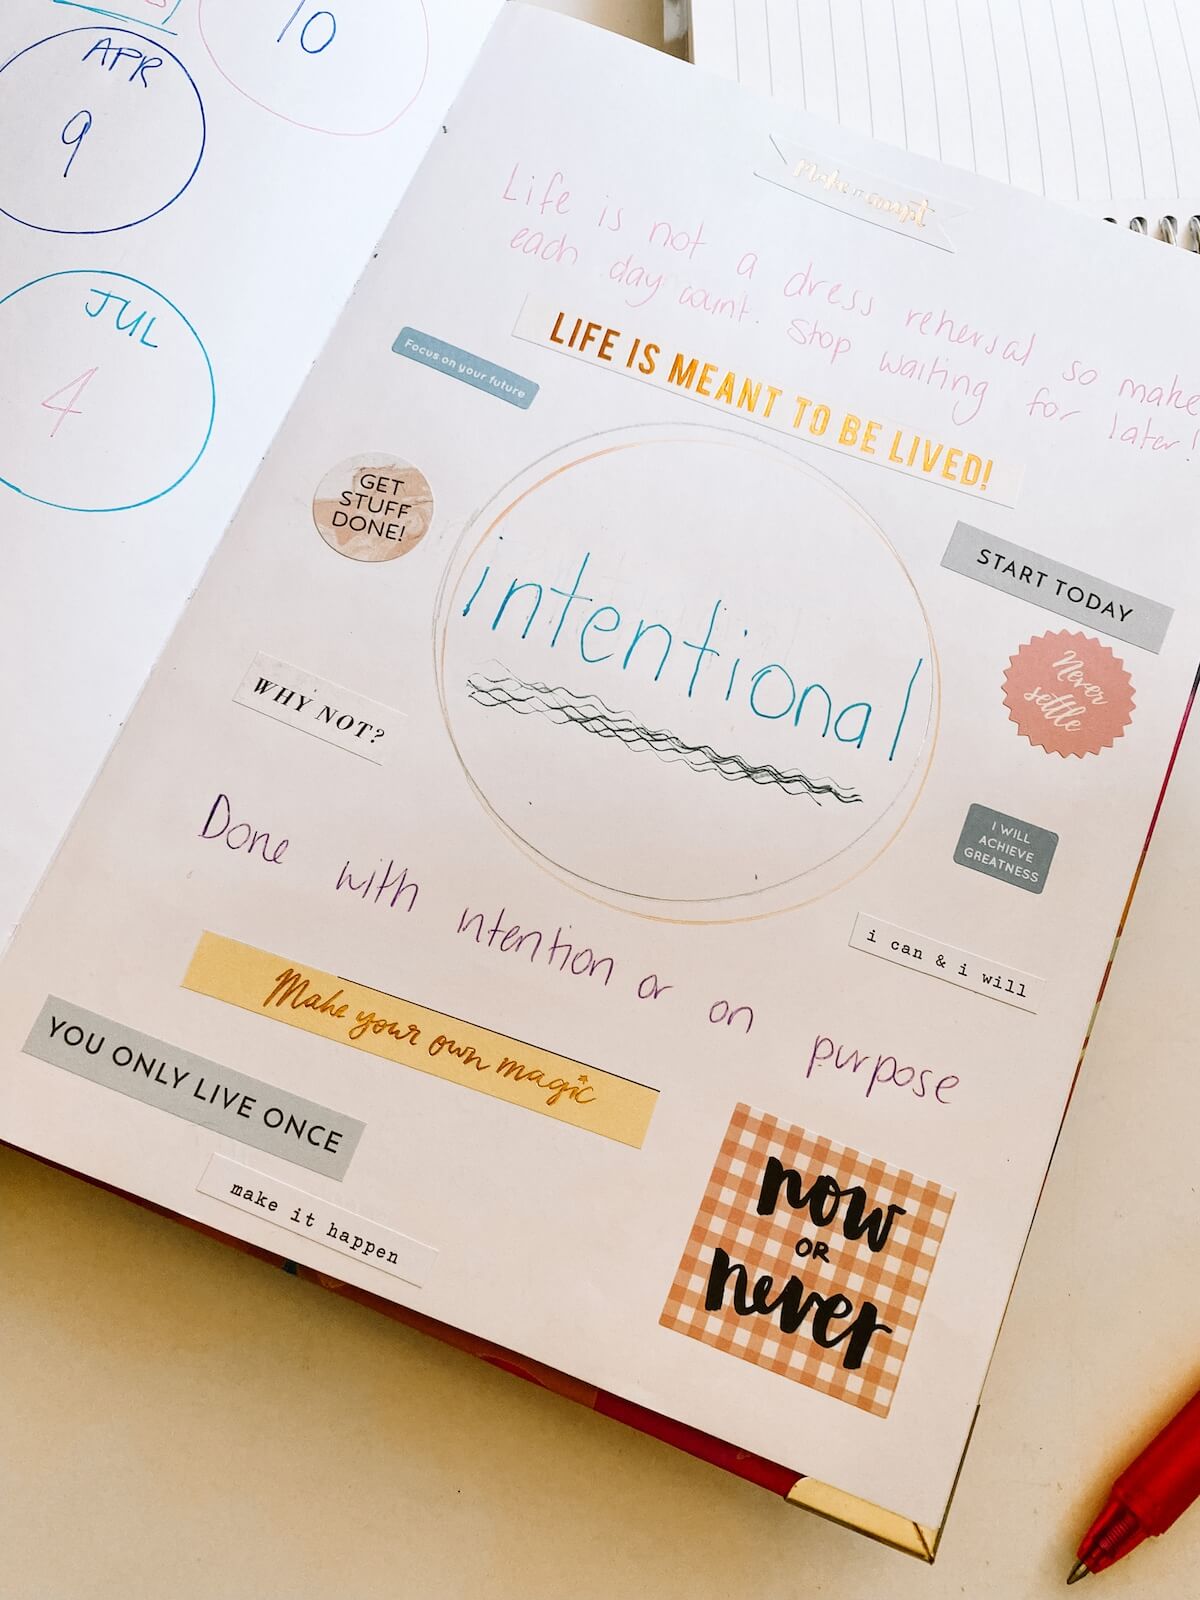 10
APR
9
JUL
4
Make it count
Life is not a dress rehersal so make
each day count. Stop waiting for later!
LIFE IS MEANT TO BE LIVED!
Focus on your future
GET
STUFF
DONE!
intentional
START TODAY
Never
settle
WHY NOT?
I WILL
ACHIEVE
GREATNESS
i can & i will
Done with intention or on purpose
Make your own magic
YOU ONLY LIVE ONCE
make it happen
now
OR
never